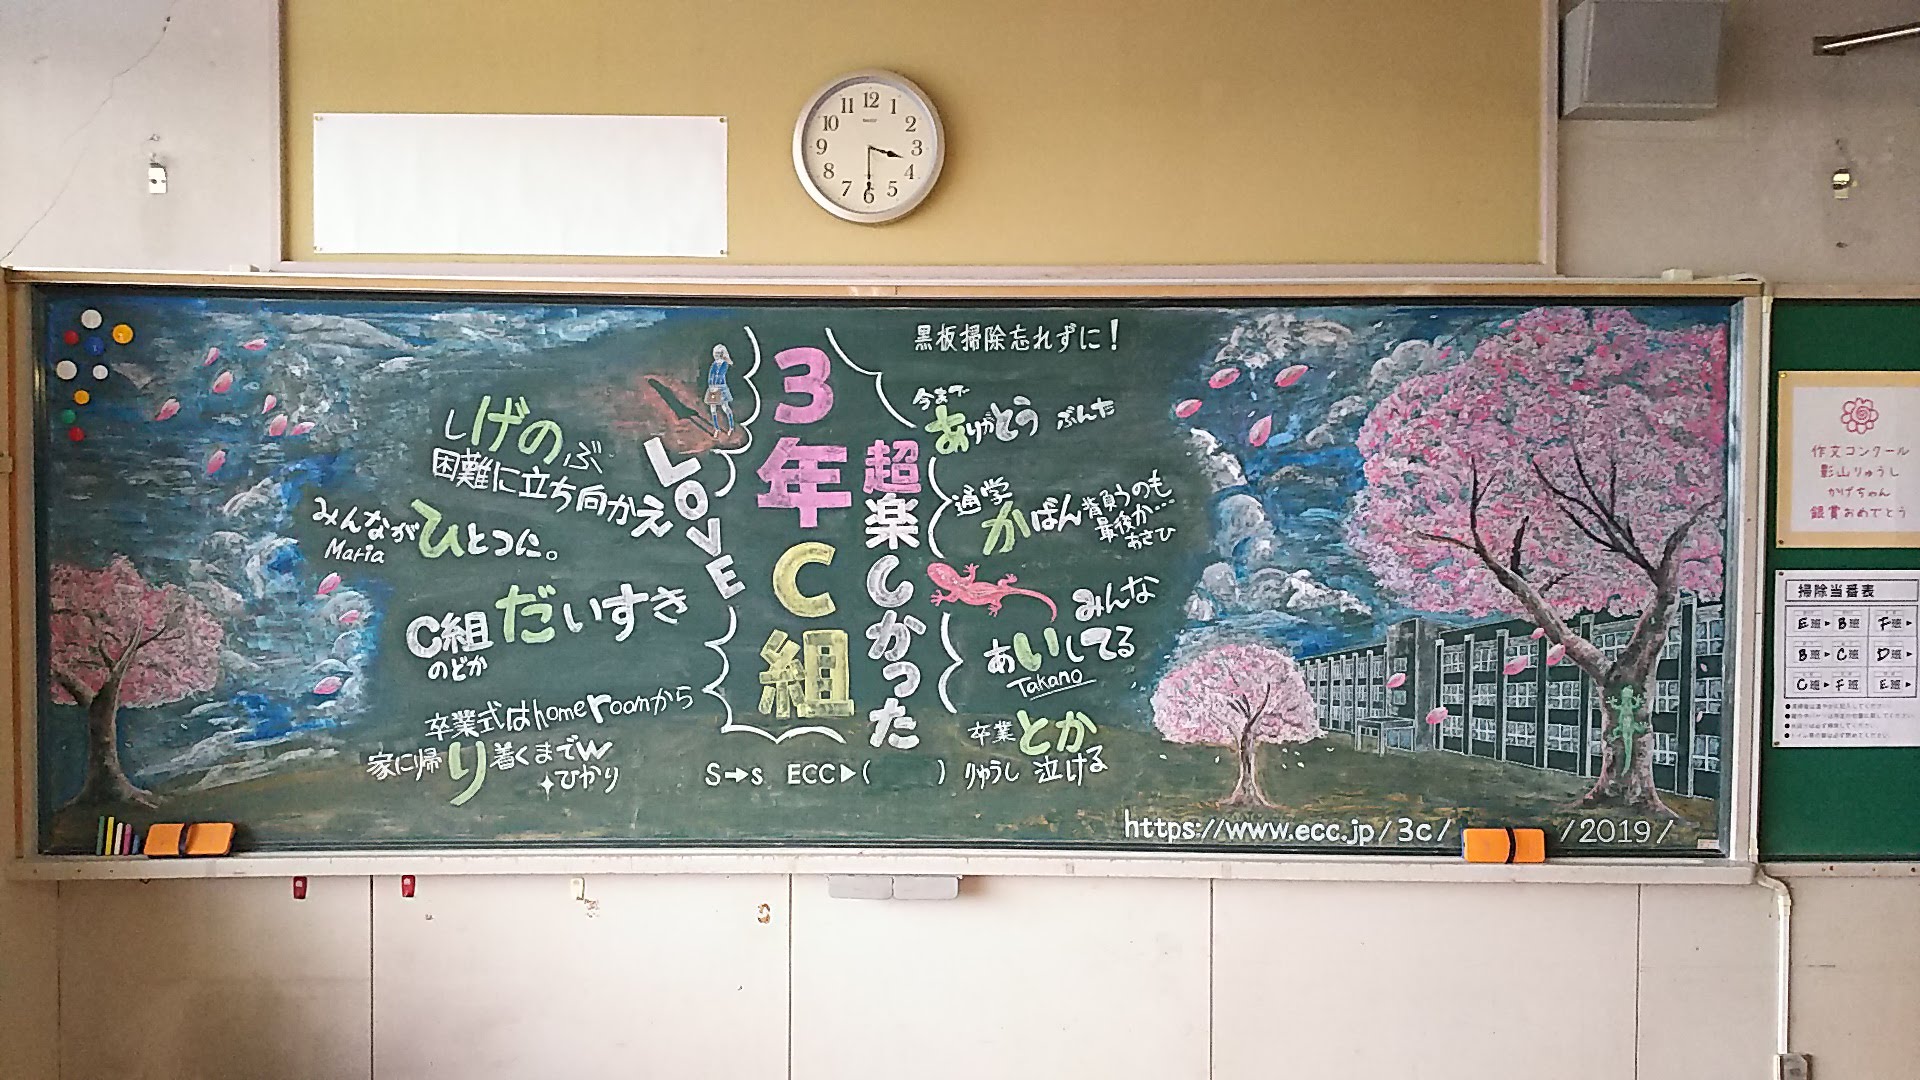 11 12 1
10 2
9 3
8 4
7 6 5
黒板掃除忘れずに!
3年C組
超楽しかった
LOVE
しげのぶ
困難に立ち向かえ
みんながひとつに。
Maria
C組だいすき
のどか
卒業式はhomeroomから
家に帰り着くまでw
ひかり
今まで
ありがとう ぶんた
通学
かばん背負うのも
最後か…
あさひ
みんな
あいしてる
Takano
卒業とか
りゅうし 泣ける
S→s ECC▶( )
https://www.ecc.jp/3c/ /2019/
作文コンクール
影山りゅうし
かげちゃん
銀賞おめでとう
掃除当番表
E班▶B班 F班▶
B班▶C班 D班▶
C班▶F班 E班▶